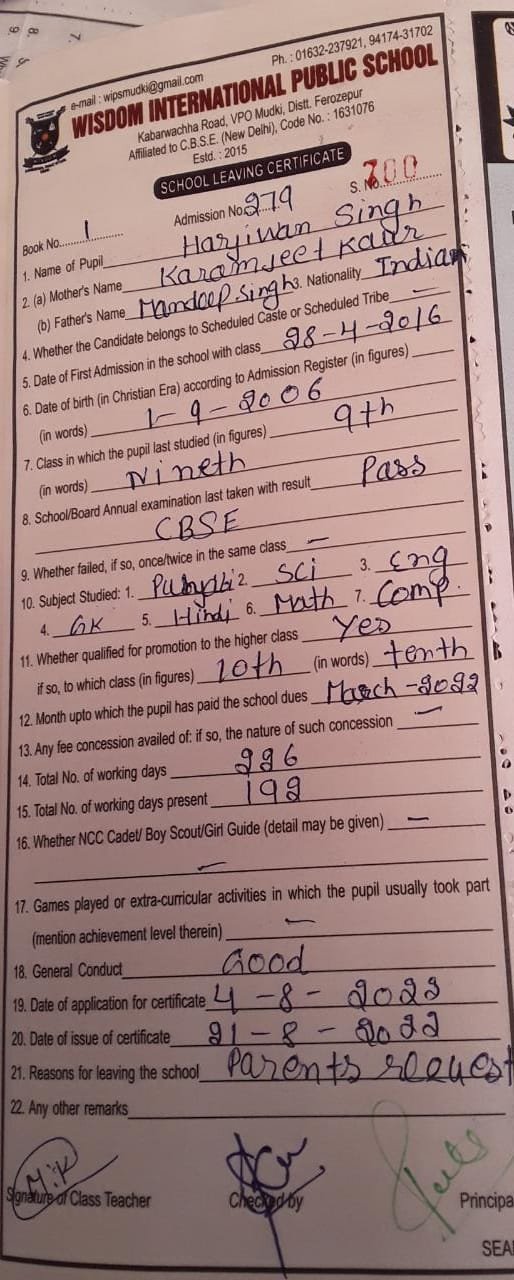 Ph. : 01632-237921, 94174-31702
e-mail : wipsmudki@gmail.com
WISDOM INTERNATIONAL PUBLIC SCHOOL
Kabarwachha Road, VPO Mudki, Distt. Ferozepur
Affiliated to C.B.S.E. (New Delhi), Code No. : 1631076
Estd. : 2015
SCHOOL LEAVING CERTIFICATE
Book No. 1 Admission No. 279 S. No. 700
1. Name of Pupil Harjiwan Singh
2. (a) Mother's Name Karamjeet Kaur
(b) Father's Name Mandeep Singh 3. Nationality Indian
4. Whether the Candidate belongs to Scheduled Caste or Scheduled Tribe —
5. Date of First Admission in the school with class 28-4-2016
6. Date of birth (in Christian Era) according to Admission Register (in figures)
(in words) 1-9-2006
7. Class in which the pupil last studied (in figures) 9th
(in words) Nineth
8. School/Board Annual examination last taken with result Pass
CBSE
9. Whether failed, if so, once/twice in the same class —
10. Subject Studied: 1. 2. Sci 3. Eng
4. GK 5. Hindi 6. Math 7. Comp.
11. Whether qualified for promotion to the higher class Yes
if so, to which class (in figures) 10th (in words) tenth
12. Month upto which the pupil has paid the school dues March-2022
13. Any fee concession availed of: if so, the nature of such concession —
14. Total No. of working days 226
15. Total No. of working days present 192
16. Whether NCC Cadet/ Boy Scout/Girl Guide (detail may be given) —
—
17. Games played or extra-curricular activities in which the pupil usually took part
(mention achievement level therein) —
18. General Conduct Good
19. Date of application for certificate 4-8-2022
20. Date of issue of certificate 21-8-2022
21. Reasons for leaving the school Parents
22. Any other remarks
M.K
Signature of Class Teacher Checked by Principa
SEA